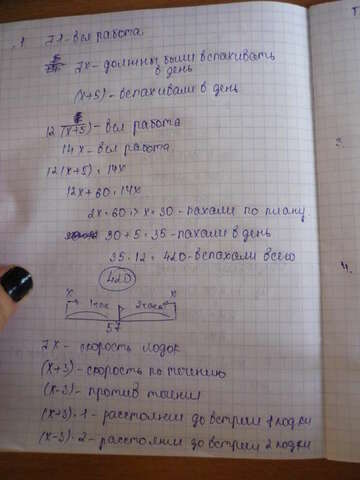 1 П.1 - вся работа
Пх - должны были вспахивать
в день
(х+5) - вспахивали в день
12(х+5) - вся работа
14х - вся работа
12(х+5) = 14х
12х + 60 = 14х
2х = 60 => х = 30 - пахали по плану
30 + 5 = 35 - пахали в день
35 · 12 = 420 - вспахали всего
420
х х
1 час 2 часа
57
Пх - скорость лодок
(х+3) - скорость по течению
(х-3) - против течения
(х+3) · 1 - расстояние до встречи 1 лодки
(х-3) · 2 - расстояние до встречи 2 лодки
3.
4.